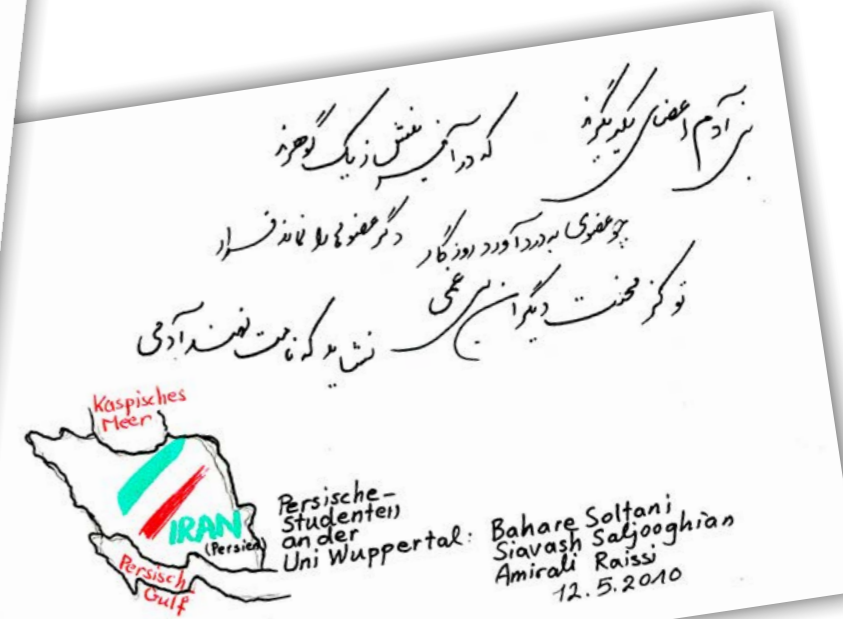 بنی آدم اعضای یکدیگرند که در آفرینش ز یک گوهرند
چو عضوی به درد آورد روزگار دگر عضوها را نماند قرار
تو کز محنت دیگران بی غمی نشاید که نامت نهند آدمی
Kaspisches
Meer
IRAN
(Persien)
Persisch
Gulf
Persische-
Studenten
an der
Uni Wuppertal:
Bahare Soltani
Siavash Saljooghian
Amirali Raissi
12.5.2010